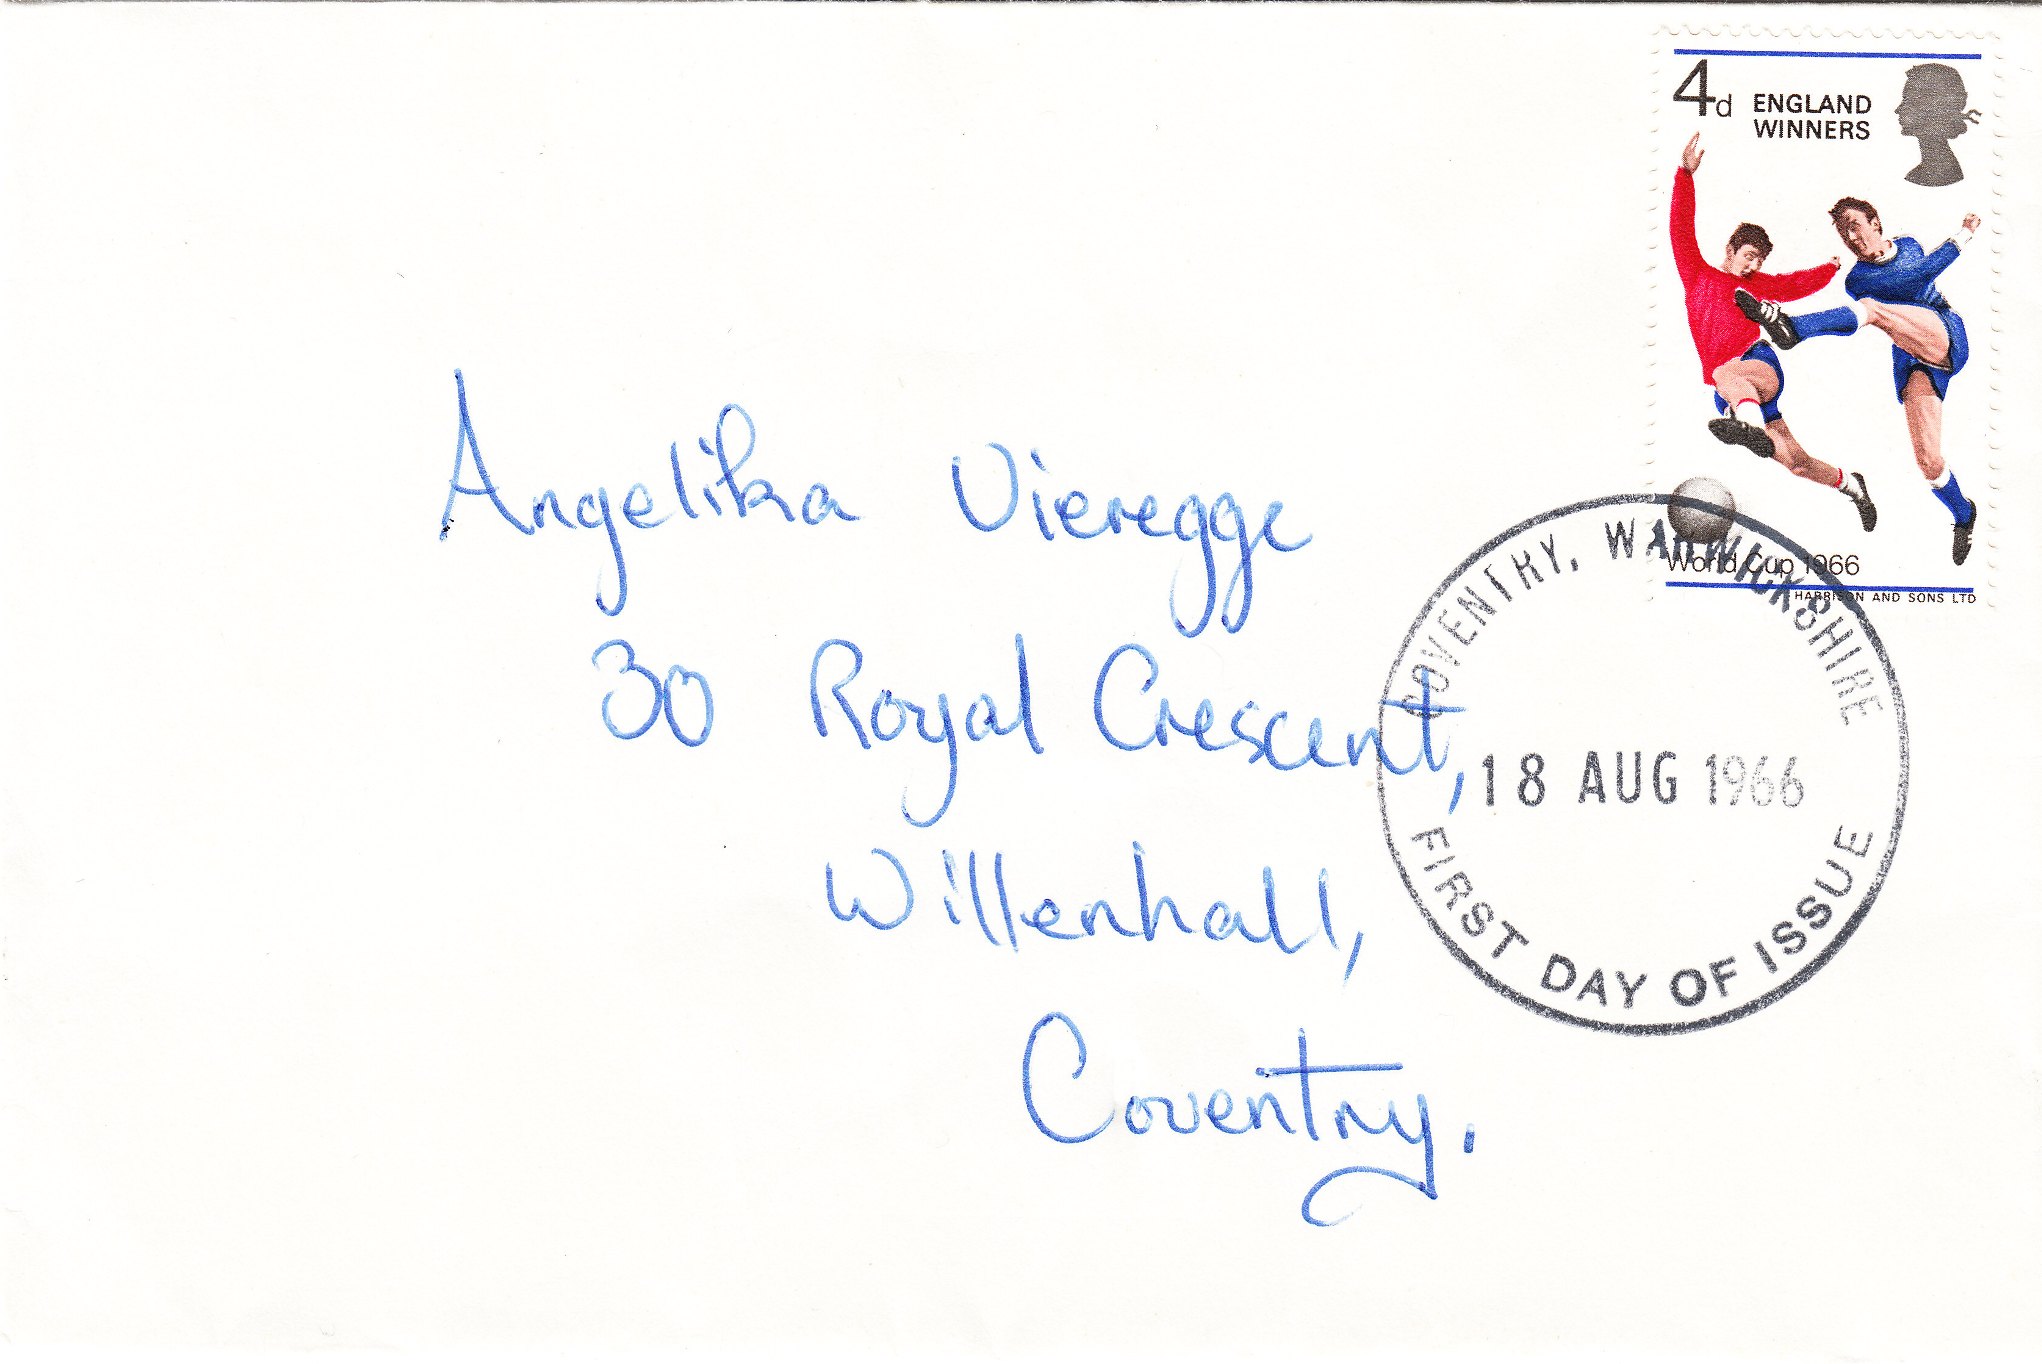 4d ENGLAND
WINNERS
World Cup 1966
HARRISON AND SONS LTD
COVENTRY, WARWICKSHIRE
18 AUG 1966
FIRST DAY OF ISSUE
Angelika Vieregge
30 Royal Crescent,
Willenhall,
Coventry.